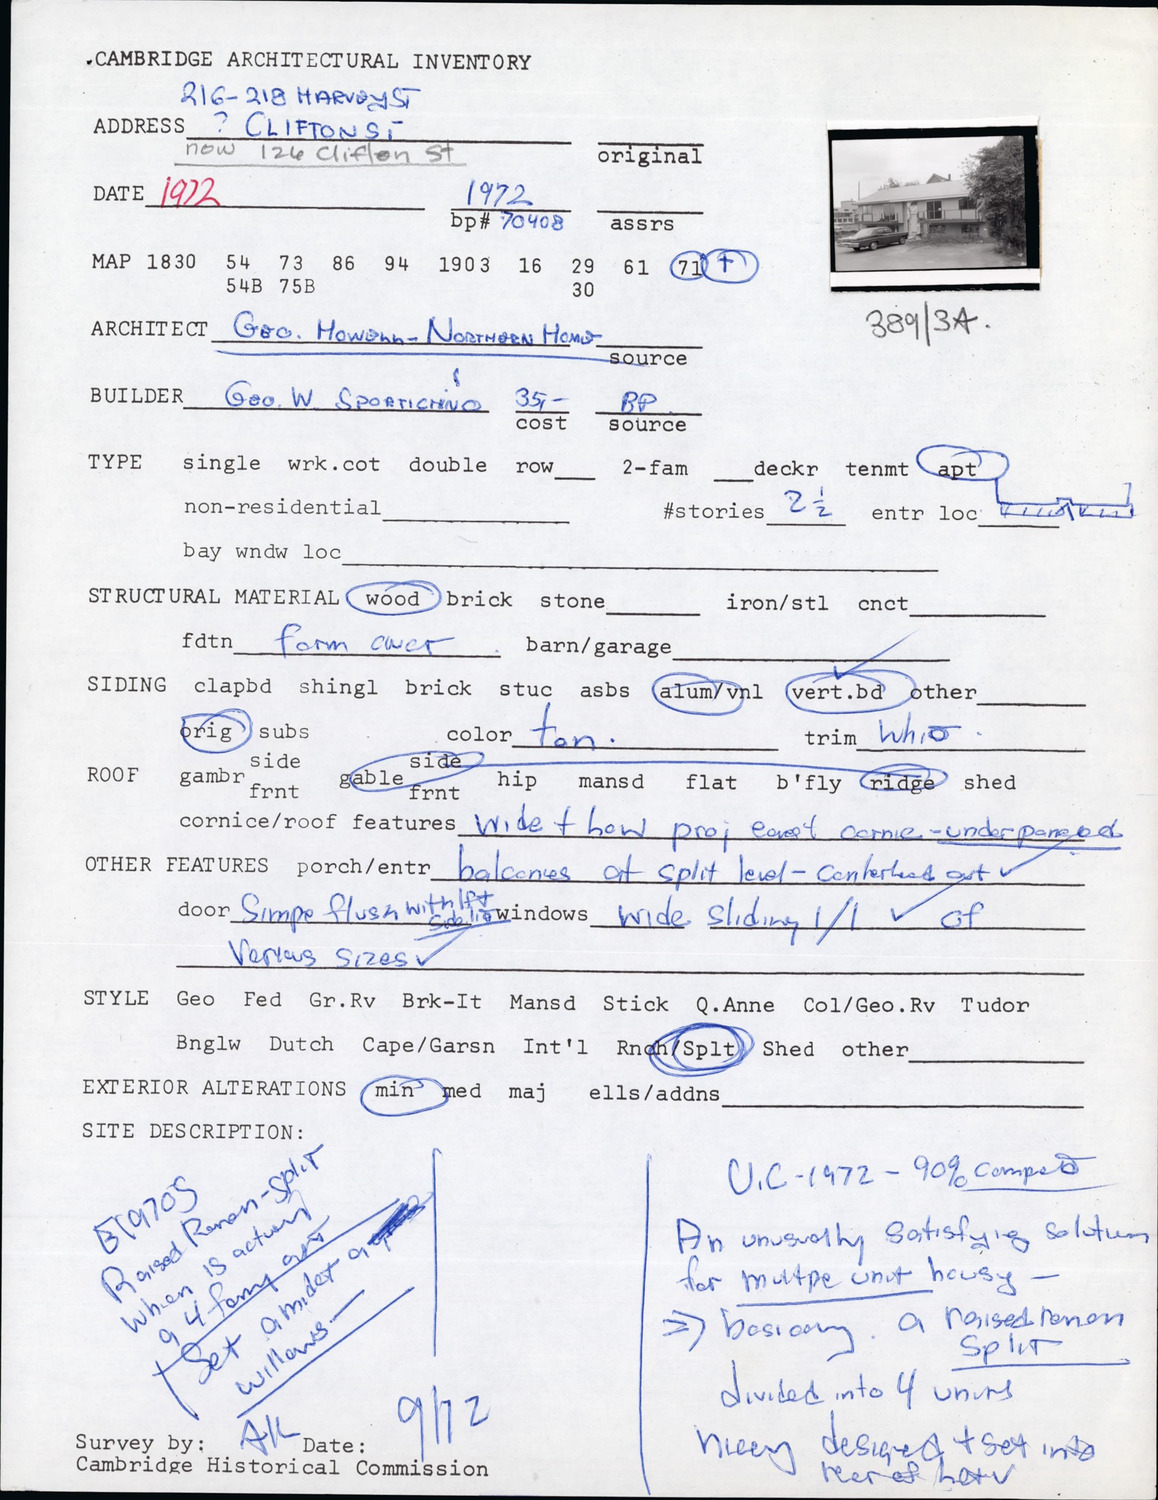 CAMBRIDGE ARCHITECTURAL INVENTORY
216-218 HARVEY ST
ADDRESS ? CLIFTON ST
now 126 Clifton St original
DATE 1972 1972
bp# 70408 assrs
MAP 1830 54 73 86 94 1903 16 29 61 71 +
54B 75B 30
389/3A.
ARCHITECT Geo. Howell - Northern Home
source
BUILDER Geo. W. 35,- BP
cost source
TYPE single wrk.cot double row 2-fam deckr tenmt apt
non-residential #stories 2 1/2 entr loc
bay wndw loc
STRUCTURAL MATERIAL wood brick stone iron/stl cnct
fdtn barn/garage
SIDING clapbd shingl brick stuc asbs alum/vnl vert.bd other
orig subs color tan. trim white.
side side
ROOF gambr gable hip mansd flat b'fly ridge shed
frnt frnt
cornice/roof features wide + how proj cornice - under paneled
OTHER FEATURES porch/entr balconies at split level - out
door Simple flush with lft
side lite windows wide sliding 1/1 of
Various sizes
STYLE Geo Fed Gr.Rv Brk-It Mansd Stick Q.Anne Col/Geo.Rv Tudor
Bnglw Dutch Cape/Garsn Int'l Rnch/Splt Shed other
EXTERIOR ALTERATIONS min med maj ells/addns
SITE DESCRIPTION:
E1970s
Raised Ranch-Split
which is actually
a 4 family apt
Set amidst
willows
U.C-1972 - 90% complete
An unusually satisfying solution
for multiple unit housing -
=> basically. a raised ranch
split
divided into 4 units
nicely designed + set into
rear of
9/72
Survey by: AK Date:
Cambridge Historical Commission